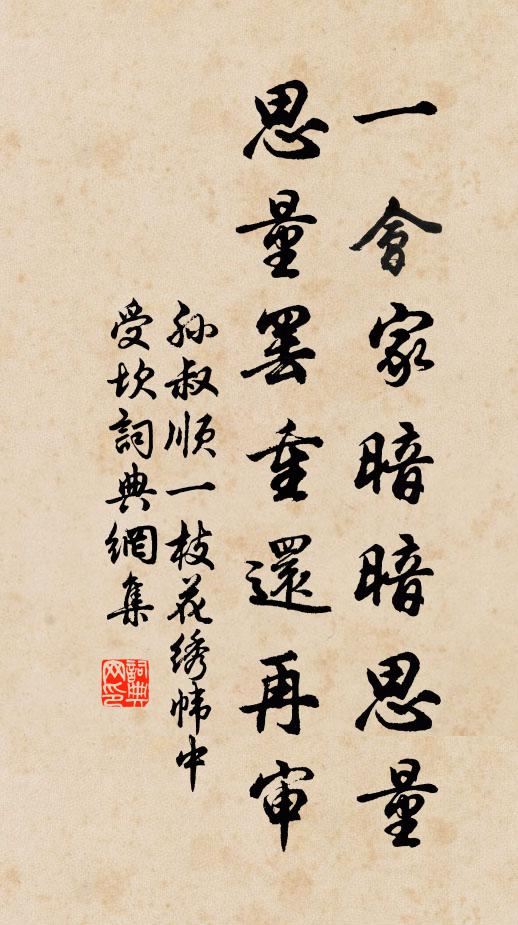 一會家暗暗思量
思量罢重還再审
孙叔顺一枝花绣帏中
受坎詞典網集
詞典
网印